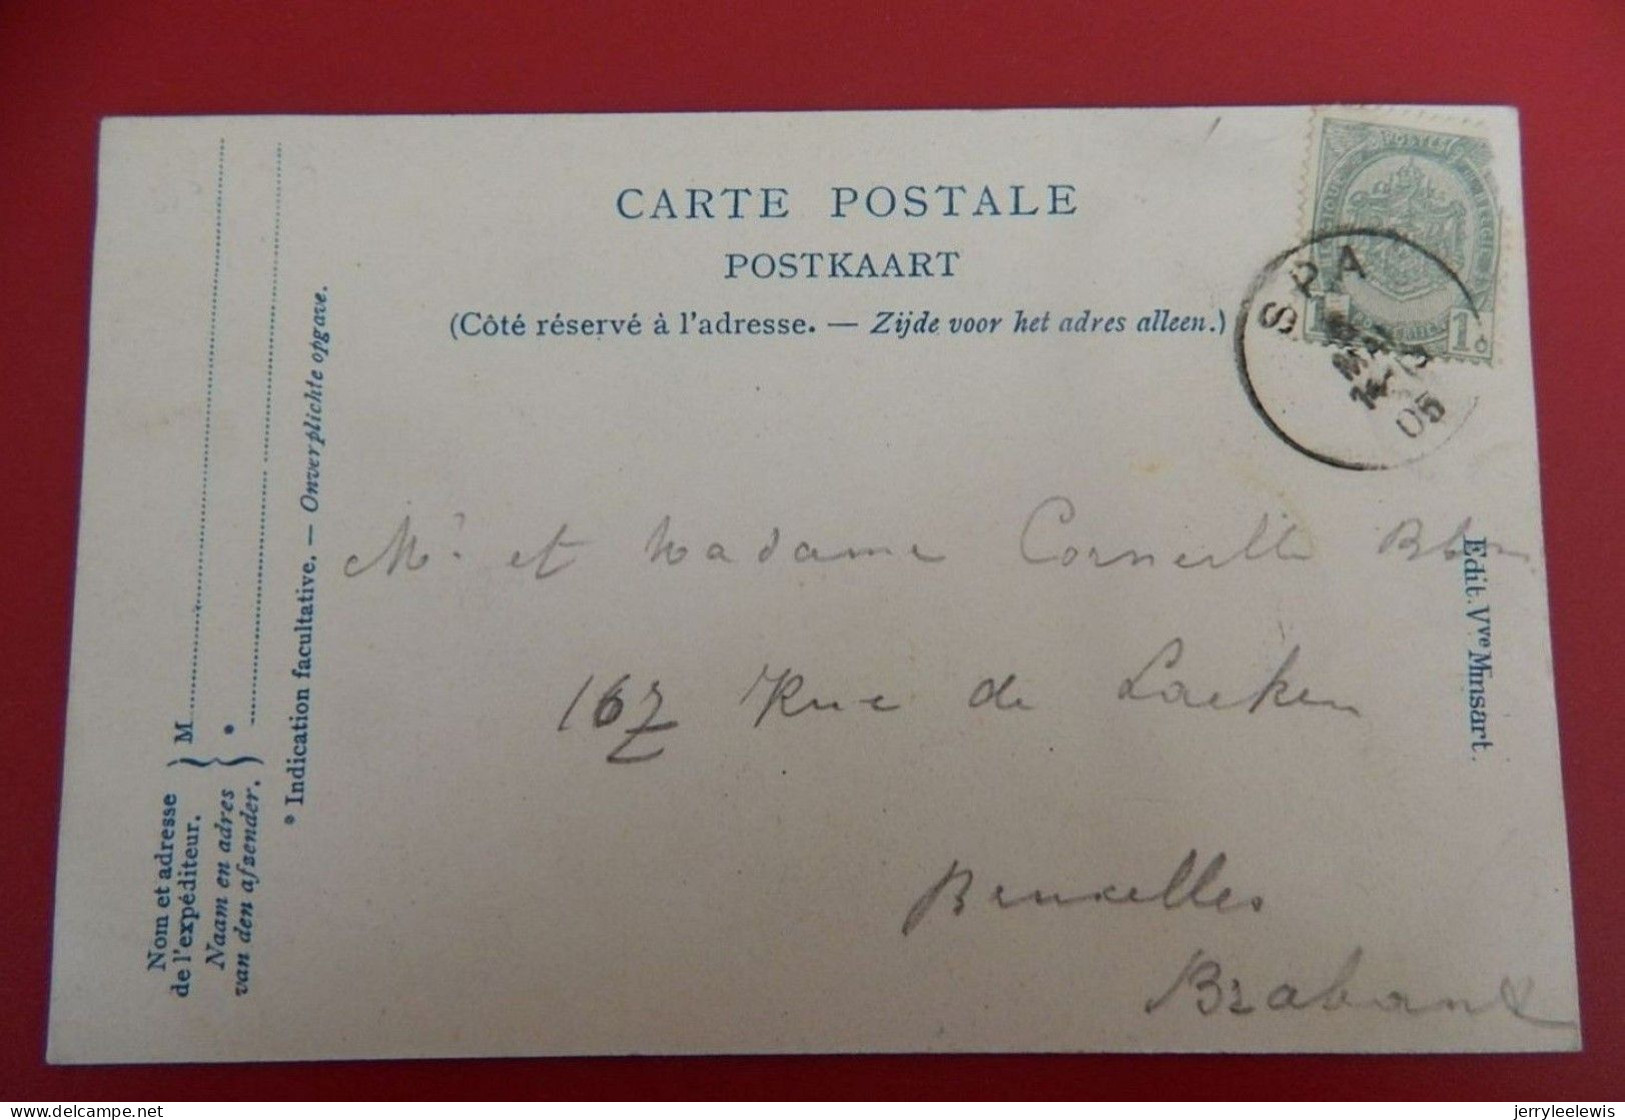 CARTE POSTALE
POSTKAART
(Côté réservé à l'adresse. — Zijde voor het adres alleen.)
POSTES
1
1
SPA
MAI
05
Mr et Madame Corneille
167 Rue de Laeken
Bruxelles
Brabant
Edit. Vve Minsart.
* Indication facultative. — Onverplichte opgave.
M
*
Nom et adresse
de l'expéditeur.
Naam en adres
van den afzender.
delcampe.net
jerryleelewis